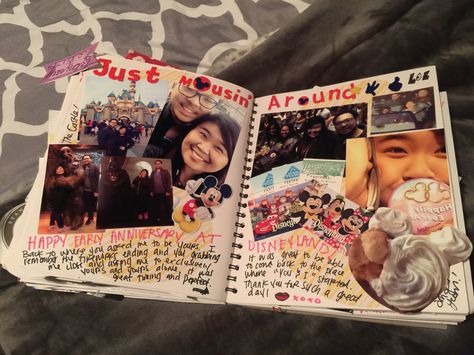 Just Mousin' Around
The Castle!
HAPPY EARLY ANNIVERSARY AT
DISNEYLAND!
Back to where you asked me to be yours. I
remember the fireworks ending and you grabbing
me close and asking me to exclusively
yours and yours alone. It was
great timing and
It was great to be able
to come back to the place
where "You & I" started.
Thank you for such a great
day!
XOXO
Disney